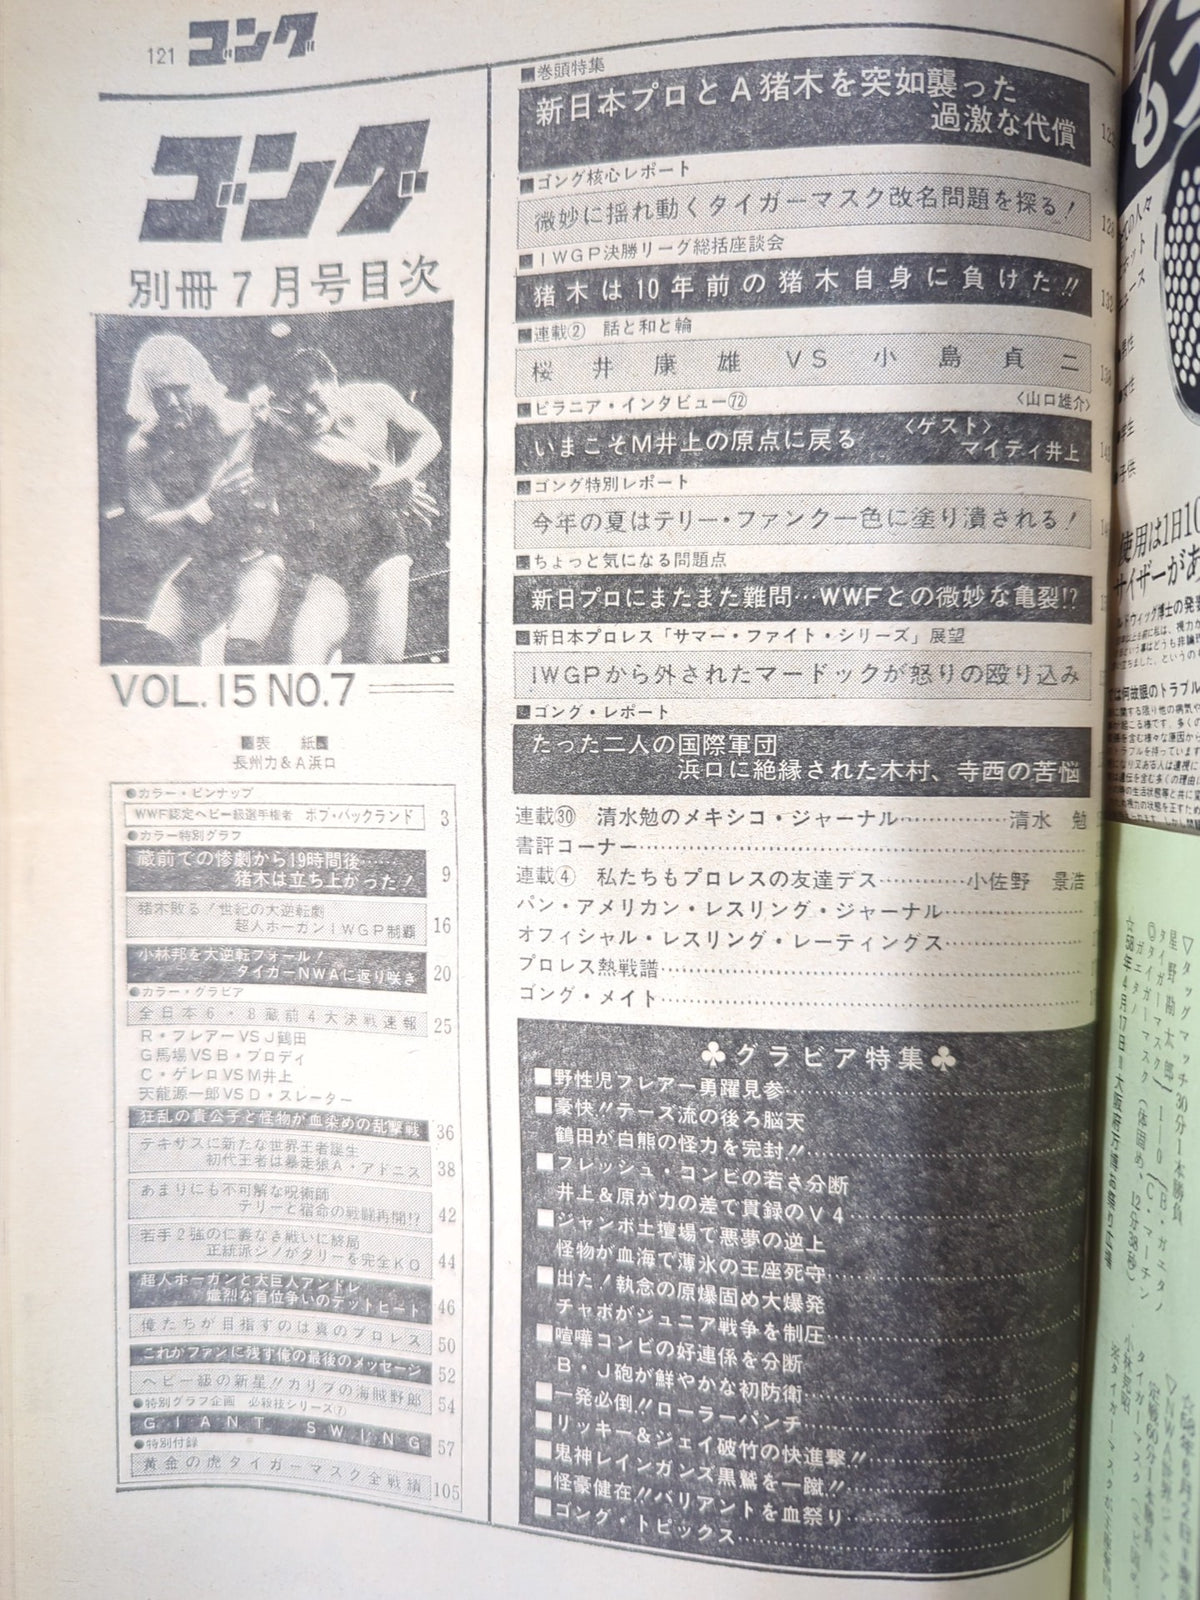 121 ゴング
ゴング
別冊7月号目次
VOL.15 NO.7
■表 紙■
長州力&A浜口
●カラー・ピンナップ
WWF認定ヘビー級選手権者 ボブ・バックランド 3
●カラー特別グラフ
蔵前での惨劇から19時間後……
猪木は立ち上がった! 9
猪木敗る!世紀の大逆転劇
超人ホーガンIWGP制覇 16
小林邦を大逆転フォール!
タイガーNWAに返り咲き 20
●カラー・グラビア
全日本6・8蔵前4大決戦速報 25
R・フレアーVSJ鶴田
G馬場VSB・ブロディ
C・ゲレロVSM井上
天龍源一郎VSD・スレーター
狂乱の貴公子と怪物が血染めの乱撃戦 36
テキサスに新たな世界王者誕生
初代王者は暴走狼A・アドニス 38
あまりにも不可解な呪術師
テリーと宿命の戦闘再開!? 42
若手2強の仁義なき戦いに終局
正統派ジノがタリーを完全KO 44
超人ホーガンと大巨人アンドレ
熾烈な首位争いのデットヒート 46
俺たちが目指すのは真のプロレス 50
これがファンに残す俺の最後のメッセージ 52
ヘビー級の新星!!カリブの海賊野郎 54
●特別グラフ企画 必殺技シリーズ⑦
GIANT SWING 57
●特別付録
黄金の虎タイガーマスク全戦績 105
■巻頭特集
新日本プロとA猪木を突如襲った
過激な代償
■ゴング核心レポート
微妙に揺れ動くタイガーマスク改名問題を探る!
■IWGP決勝リーグ総括座談会
猪木は10年前の猪木自身に負けた!!
■連載② 話と和と輪
桜井康雄VS小島貞二
■ピラニア・インタビュー72 〈山口雄介〉
いまこそM井上の原点に戻る 〈ゲスト〉
マイティ井上
■ゴング特別レポート
今年の夏はテリー・ファンク一色に塗り潰される!
■ちょっと気になる問題点
新日プロにまたまた難問…WWFとの微妙な亀裂!?
■新日本プロレス「サマー・ファイト・シリーズ」展望
IWGPから外されたマードックが怒りの殴り込み
■ゴング・レポート
たった二人の国際軍団
浜口に絶縁された木村、寺西の苦悩
連載㉚ 清水勉のメキシコ・ジャーナル……………清水 勉
書評コーナー……………
連載④ 私たちもプロレスの友達デス……………小佐野 景浩
パン・アメリカン・レスリング・ジャーナル……………
オフィシャル・レスリング・レーティングス……………
プロレス熱戦譜……………
ゴング・メイト……………
♣グラビア特集♣
■野性児フレアー勇躍見参……………
■豪快!!テーズ流の後ろ脳天
鶴田が白熊の怪力を完封!!……………
■フレッシュ・コンビの若さ分断
井上&原が力の差で貫録のV4……………
■ジャンボ土壇場で悪夢の逆上
怪物が血海で薄氷の王座死守……………
■出た!執念の原爆固め大爆発
チャボがジュニア戦争を制圧……………
■喧嘩コンビの好連係を分断
B・J砲が鮮やかな初防衛……………
■一発必倒!!ローラーパンチ……………
■リッキー&ジェイ破竹の快進撃!!……………
■鬼神レインガンズ黒鷲を一蹴!!……………
■怪豪健在!!バリアントを血祭り……………
■ゴング・トピックス……………